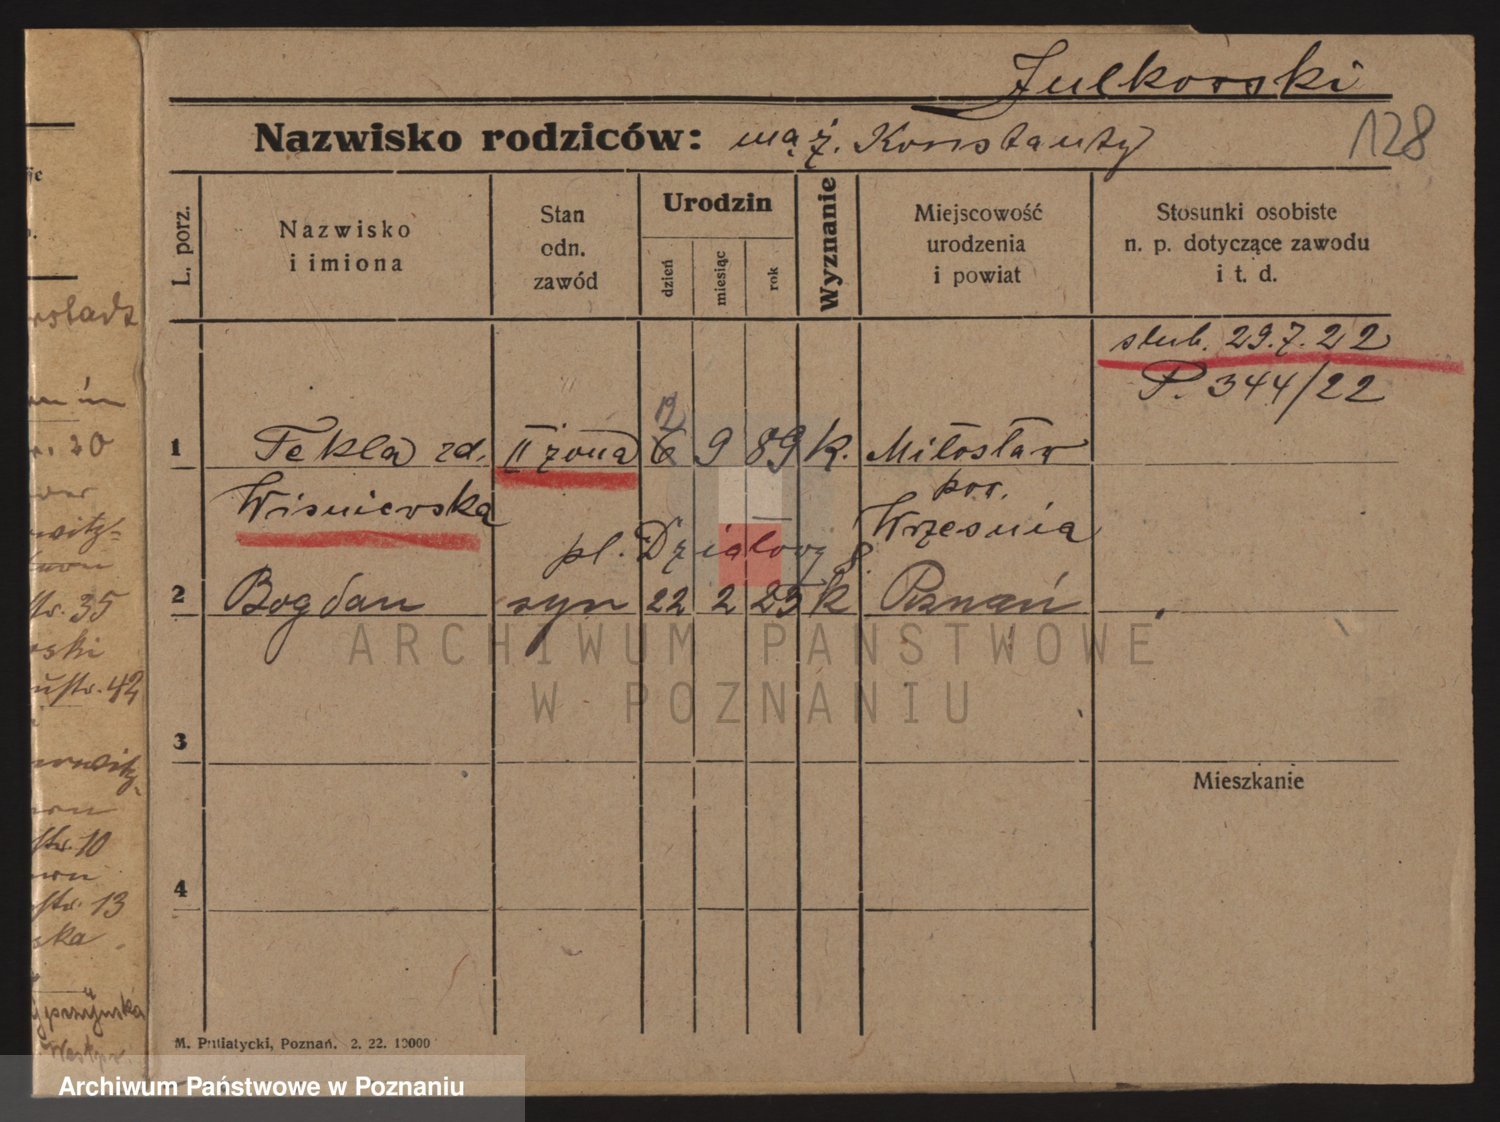 Julkowski
Nazwisko rodziców: mąż. Konstanty
128
L. porz.
Nazwisko
i imiona
Stan
odn.
zawód
Urodzin
dzień
miesiąc
rok
Wyznanie
Miejscowość
urodzenia
i powiat
Stosunki osobiste
n. p. dotyczące zawodu
i t. d.
ślub. 29.7.22
P. 344/22
12
1 Tekla zd. II żona 6 9 89 k. Miłosław
Wiśniewska pow.
Września
pl. Działowy 8.
2 Bogdan syn 22 2 25 k Poznań
ARCHIWUM PAŃSTWOWE
W POZNANIU
3
Mieszkanie
4
M. Putiatycki, Poznań. 2. 22. 10000
. 20
str. 35
str. 42
str. 10
str. 13
Archiwum Państwowe w Poznaniu